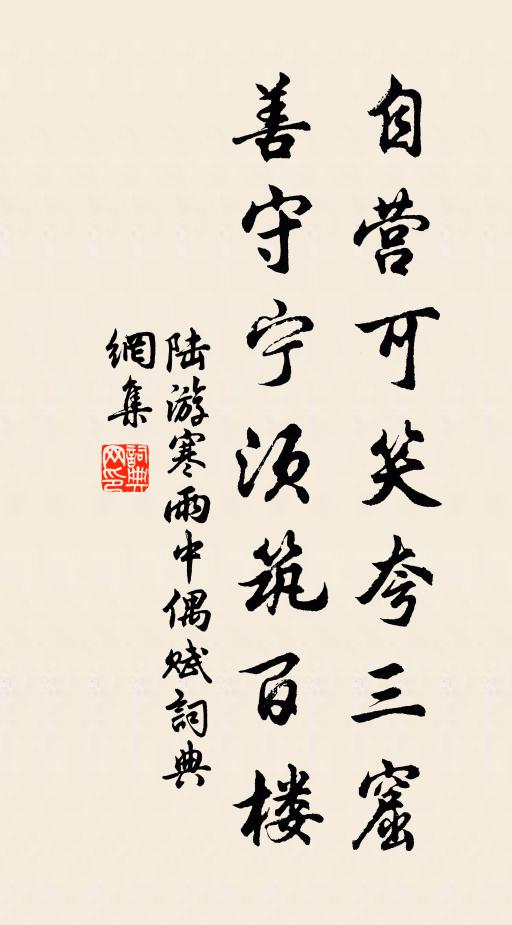 自营可笑夸三窟
善守宁须筑百楼
陆游寒雨中偶赋詞典
網集
詞典
网印